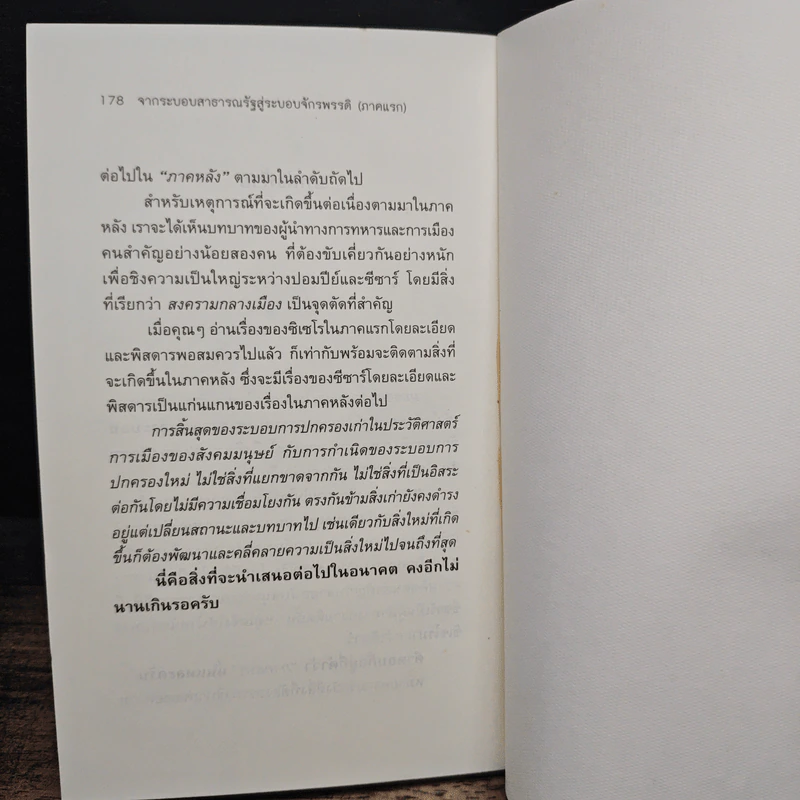 178 จากระบอบสาธารณรัฐสู่ระบอบจักรพรรดิ (ภาคแรก)
ต่อไปใน “ภาคหลัง” ตามมาในลำดับถัดไป
สำหรับเหตุการณ์ที่จะเกิดขึ้นต่อเนื่องตามมาในภาค
หลัง เราจะได้เห็นบทบาทของผู้นำทางการทหารและการเมือง
คนสำคัญอย่างน้อยสองคน ที่ต้องขับเคี่ยวกันอย่างหนัก
เพื่อชิงความเป็นใหญ่ระหว่างปอมปีย์และซีซาร์ โดยมีสิ่ง
ที่เรียกว่า สงครามกลางเมือง เป็นจุดตัดที่สำคัญ
เมื่อคุณๆ อ่านเรื่องของซิเซโรในภาคแรกโดยละเอียด
และพิสดารพอสมควรไปแล้ว ก็เท่ากับพร้อมจะติดตามสิ่งที่
จะเกิดขึ้นในภาคหลัง ซึ่งจะมีเรื่องของซีซาร์โดยละเอียดและ
พิสดารเป็นแก่นแกนของเรื่องในภาคหลังต่อไป
การสิ้นสุดของระบอบการปกครองเก่าในประวัติศาสตร์
การเมืองของสังคมมนุษย์ กับการกำเนิดของระบอบการ
ปกครองใหม่ ไม่ใช่สิ่งที่แยกขาดจากกัน ไม่ใช่สิ่งที่เป็นอิสระ
ต่อกันโดยไม่มีความเชื่อมโยงกัน ตรงกันข้ามสิ่งเก่ายังคงดำรง
อยู่แต่เปลี่ยนสถานะและบทบาทไป เช่นเดียวกับสิ่งใหม่ที่เกิด
ขึ้นก็ต้องพัฒนาและคลี่คลายความเป็นสิ่งใหม่ไปจนถึงที่สุด
นี่คือสิ่งที่จะนำเสนอต่อไปในอนาคต คงอีกไม่
นานเกินรอครับ